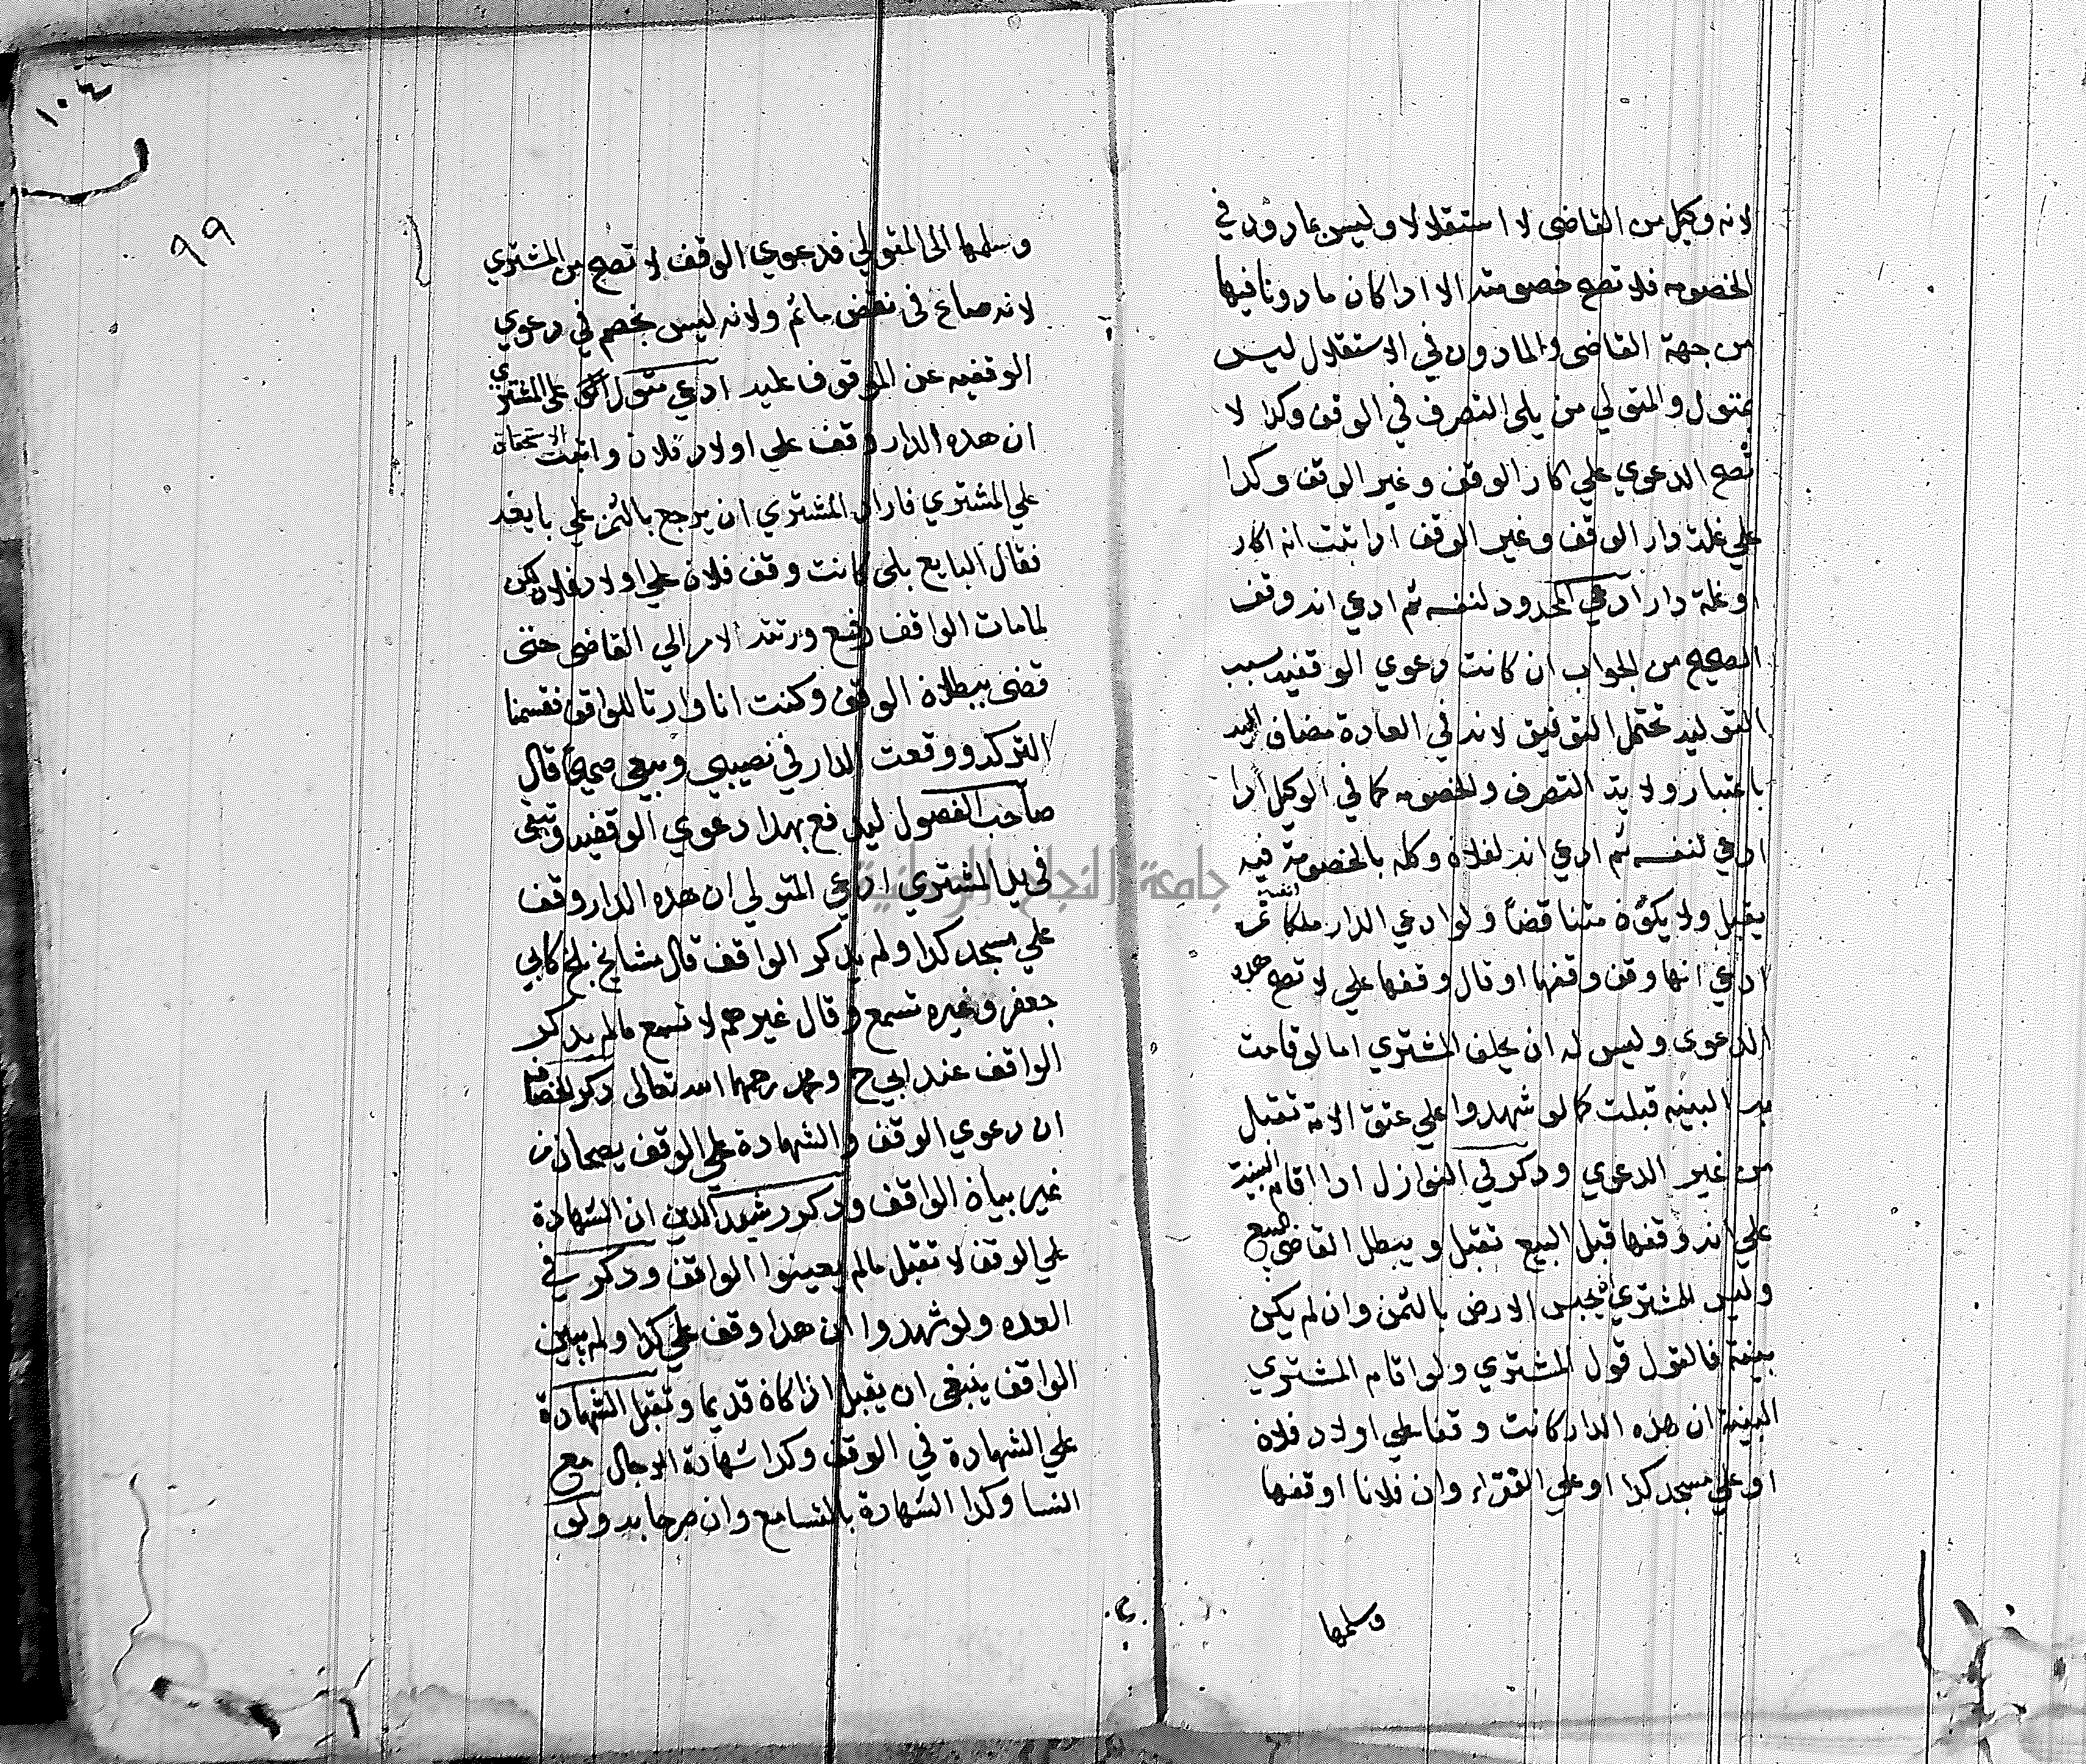 لانه وكيل من القاضى لا استقلالا وليس بمادون في
الخصومه فلا تصح خصومته الا ادا كان مادونا فيها
من جهة القاضى والمادون في الاستقلال ليس
بمتول والمتولي من يلى التصرف في الوقف وكدا لا
تصح الدعوي علي اكار الوقف وغير الوقف وكدا
علي غلة دار الوقف وغير الوقف ادا ثبت انه اكار
او غلة دار ادعي المحدود لنفسه ثم ادعي انه وقف
الصحيح من الجواب ان كانت دعوي الوقفيه بسبب
التوليه تحتمل التوفيق لانه في العادة مضاف اليه
باعتبار ولاية التصرف والخصومه كما في الوكيل ادا
ادعي لنفسه ثم ادعي انه لفلان وكله بالخصومة فيه
يقبل ولا يكون متناقضا ولو ادعي الدار ملكا لنفسه ثم
ادعي انها وقف وقفها او قال وقفها علي لا تصح هده
الدعوى وليس له ان يحلف المشتري اما لو قامت
به البينه قبلت كما لو شهدوا علي عتق الامة تقبل
من غير الدعوي ودكر في النوازل ادا اقام البينة
علي انه وقفها قبل البيع تقبل ويبطل القاضى البيع
وليس للمشتري ان يحبس الارض بالثمن وان لم يكن
بينة فالقول قول المشتري ولو اقام المشتري
البينة ان هده الدار كانت وقفا علي اولاد فلان
او علي مسجد كدا او علي الفقراء وان فلانا اوقفها
وسلمها
١٠٤
٩٩
وسلمها الى المتولي فدعوي الوقف لا تصح من المشتري
لانه صاع في نقض ماتم ولانه ليس بخصم في دعوي
الوقفيه عن الموقوف عليه ادعي متول اخر على المشتري
ان هده الدار وقف علي اولاد فلان واثبت الاستحقاق
علي المشتري فاراد المشتري ان يرجع بالثمن علي بايعه
فقال البايع بلى كانت وقف فلان علي اولاد فلان لكن
لما مات الواقف رفع ورثته الامر الي القاضى حتى
قضى ببطلان الوقف وكنت انا وارثا للواقف فقسمنا
التركه ووقعت الدار في نصيبي وبيعي صحيح قال
صاحب الفصول ليدفع بهدا دعوي الوقفيه وتبقى
في يد المشتري ادعي المتولي ان هده الدار وقف
علي مسجد كدا ولم يدكر الواقف قال مشايخ بلخ كابي
جعفر وغيره تسمع وقال غيرهم لا تسمع مالم يدكر
الواقف عند ابي ح ومحمد رحمهما الله تعالى دكر الخصاف
ان دعوي الوقف والشهادة على الوقف يصحان من
غير بيان الواقف ودكر رشيد الدين ان الشهادة
علي الوقف لا تقبل مالم يعينوا الواقف ودكر في
العده ولو شهدوا ان هدا وقف علي كدا ولم يبين
الواقف ينبغي ان يقبل اذا كان قديما وتقبل الشهادة
علي الشهادة في الوقف وكدا شهادة الرجال مع
النسا وكدا الشهادة بالتسامع وان صرحا به ولو
جامعة النجاح الوطنية